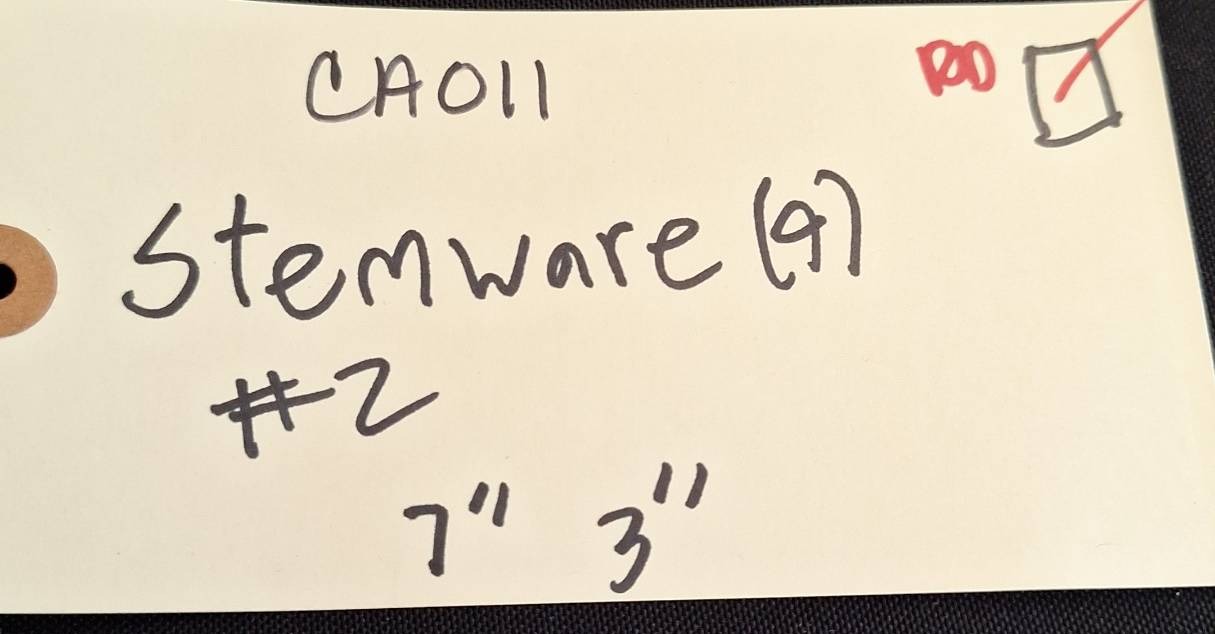 CA011
Stemware (9)
#2
7" 3"